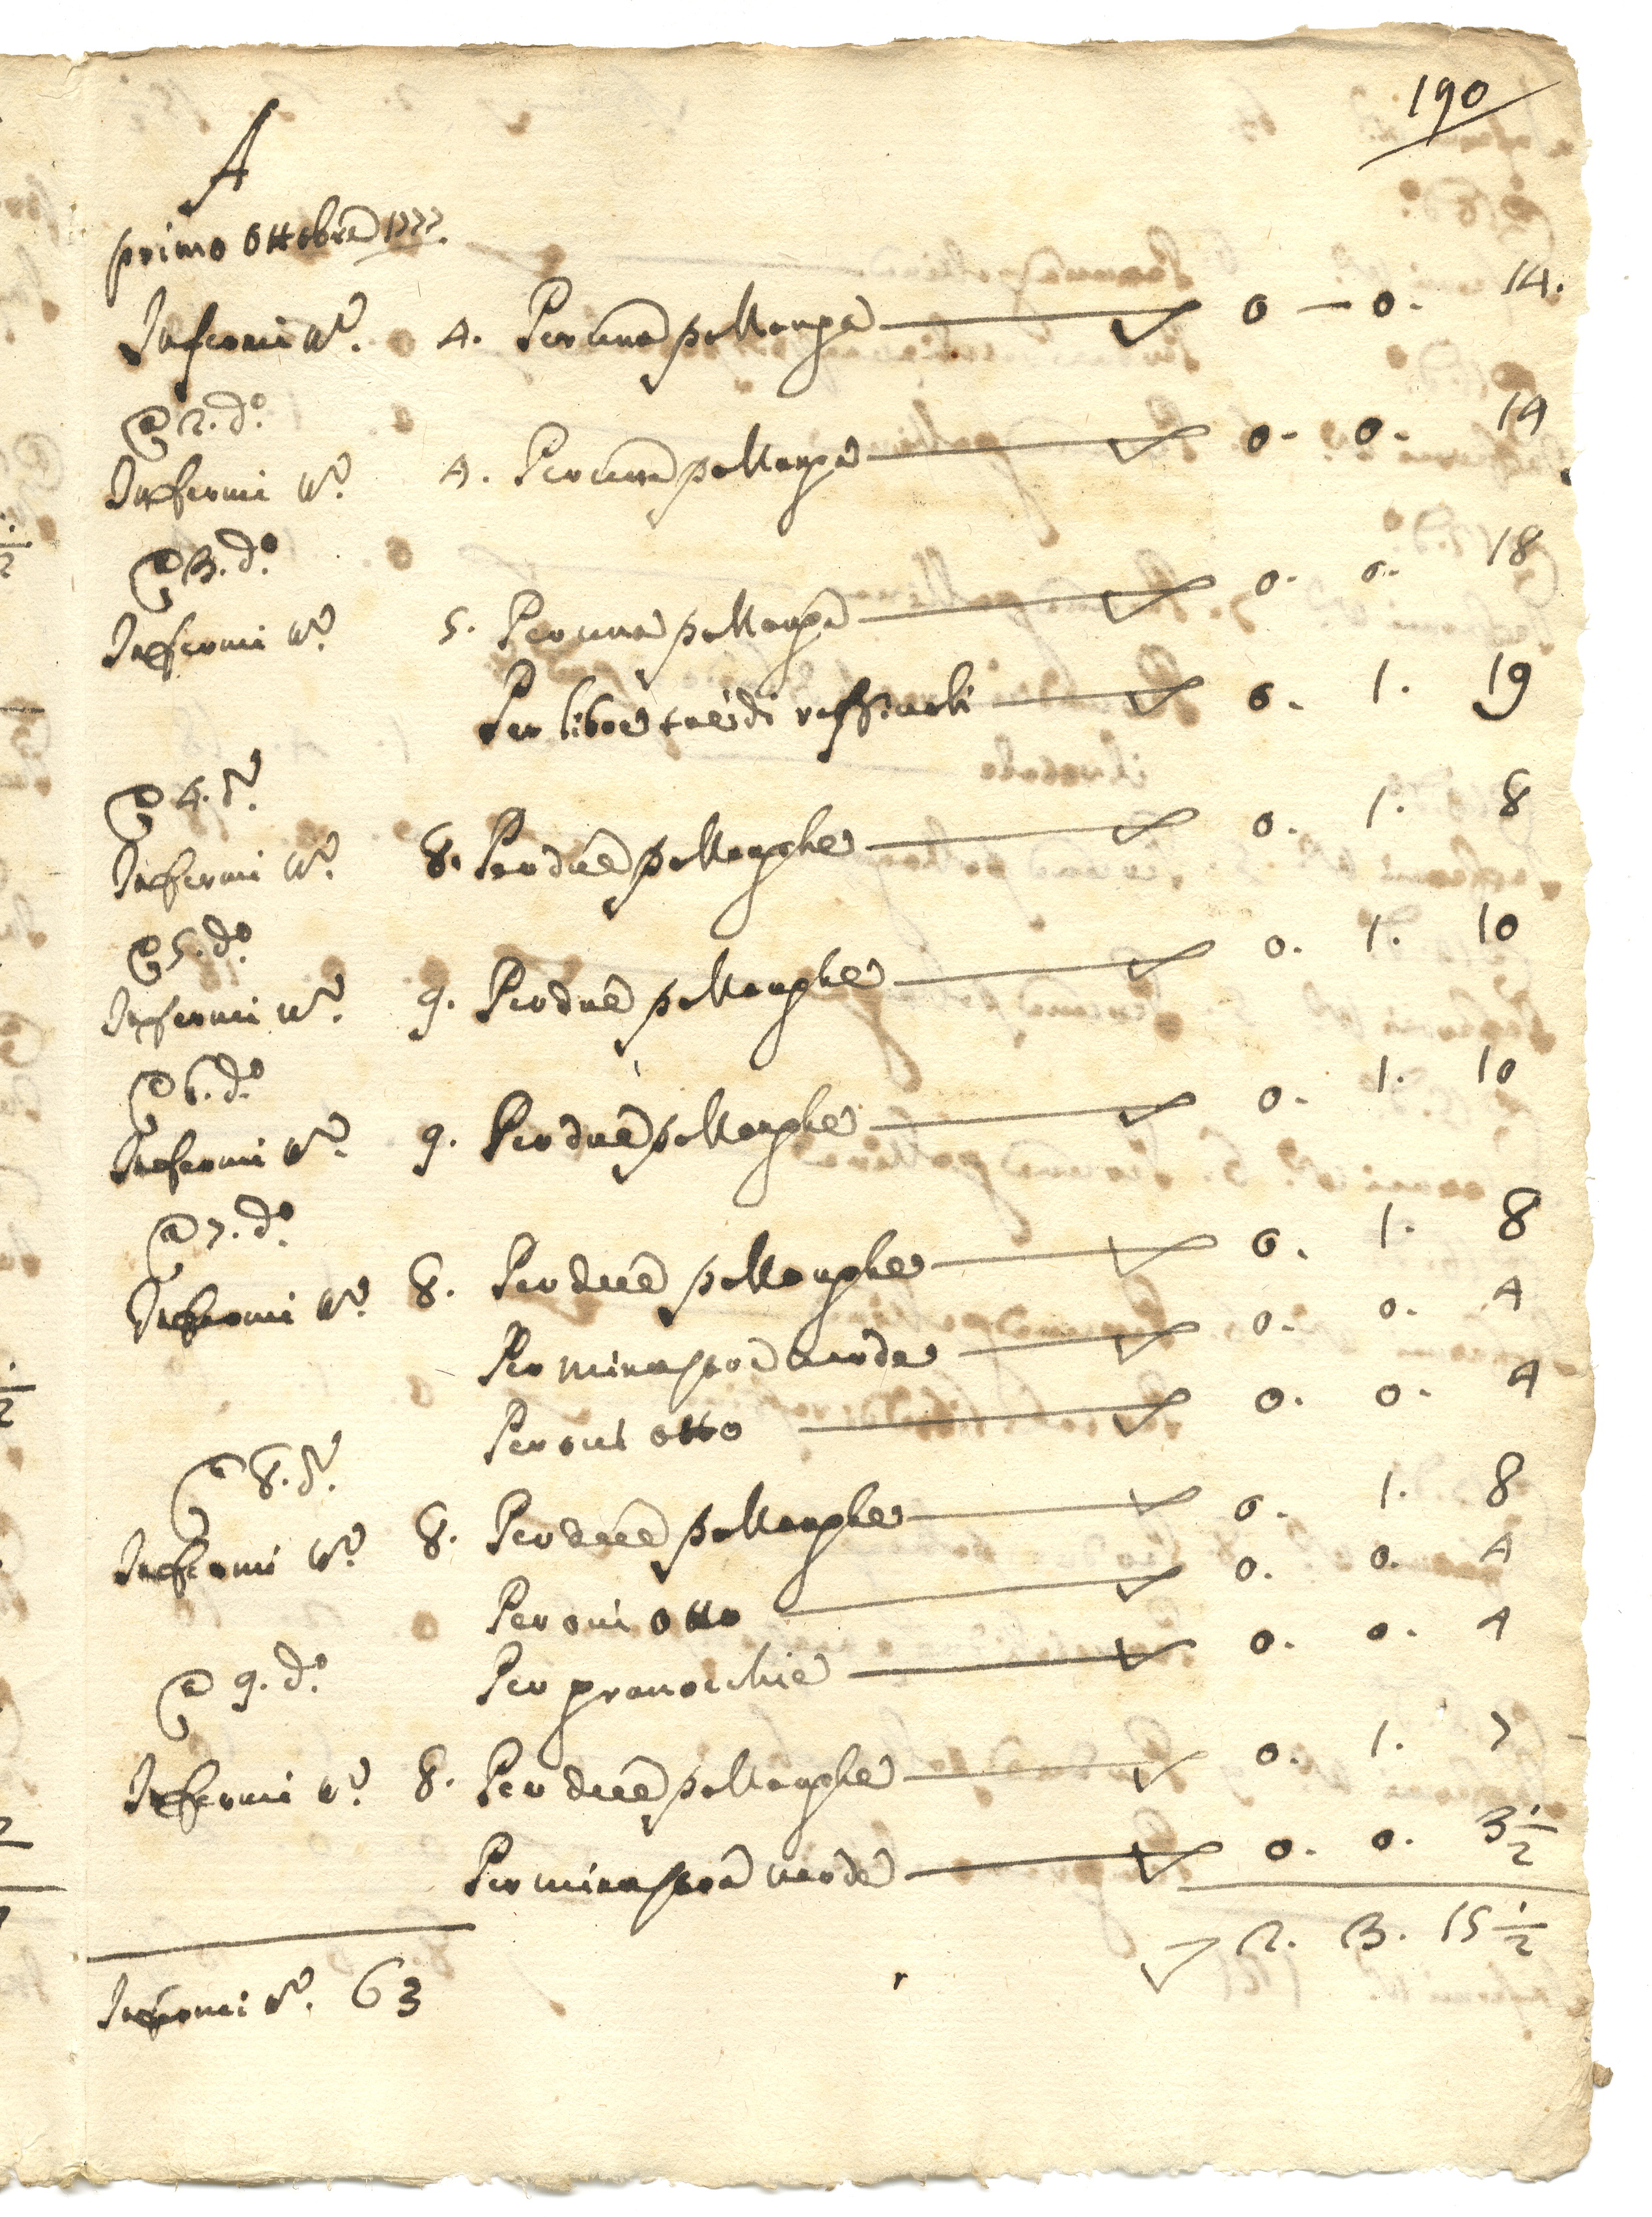 190
A
primo Ottobre 1777.
Infermi N.º 4. Per una pollanga 0 — 0. 14.
@ 2. d.º
Infermi N.º 4. Per una pollanga 0. 0. 14
@ 3. d.º
Infermi N.º 5. Per una pollanga 0. 0. 18
Per libre tre di 0. 1. 19
@ 4. d.º
Infermi N.º 8. Per due pollanghe 0. 1. 8
@ 5. d.º
Infermi N.º 9. Per due pollanghe 0. 1. 10
@ 6. d.º
Infermi N.º 9. Per due pollanghe 0. 1. 10
@ 7. d.º
Infermi N.º 8. Per due pollanghe 0. 1. 8
Per minestra verde 0. 0. 4
Per ovi otto 0. 0. 4
@ 8. d.º
Infermi N.º 8. Per due pollanghe 0. 1. 8
Per ovi otto 0. 0. 4
Per granocchie 0. 0. 4
@ 9. d.º
Infermi N.º 8. Per due pollanghe 0. 1. 7
Per minestra verde 0. 0. 3 1/2
2. 3. 15 1/2
Infermi N.º 63